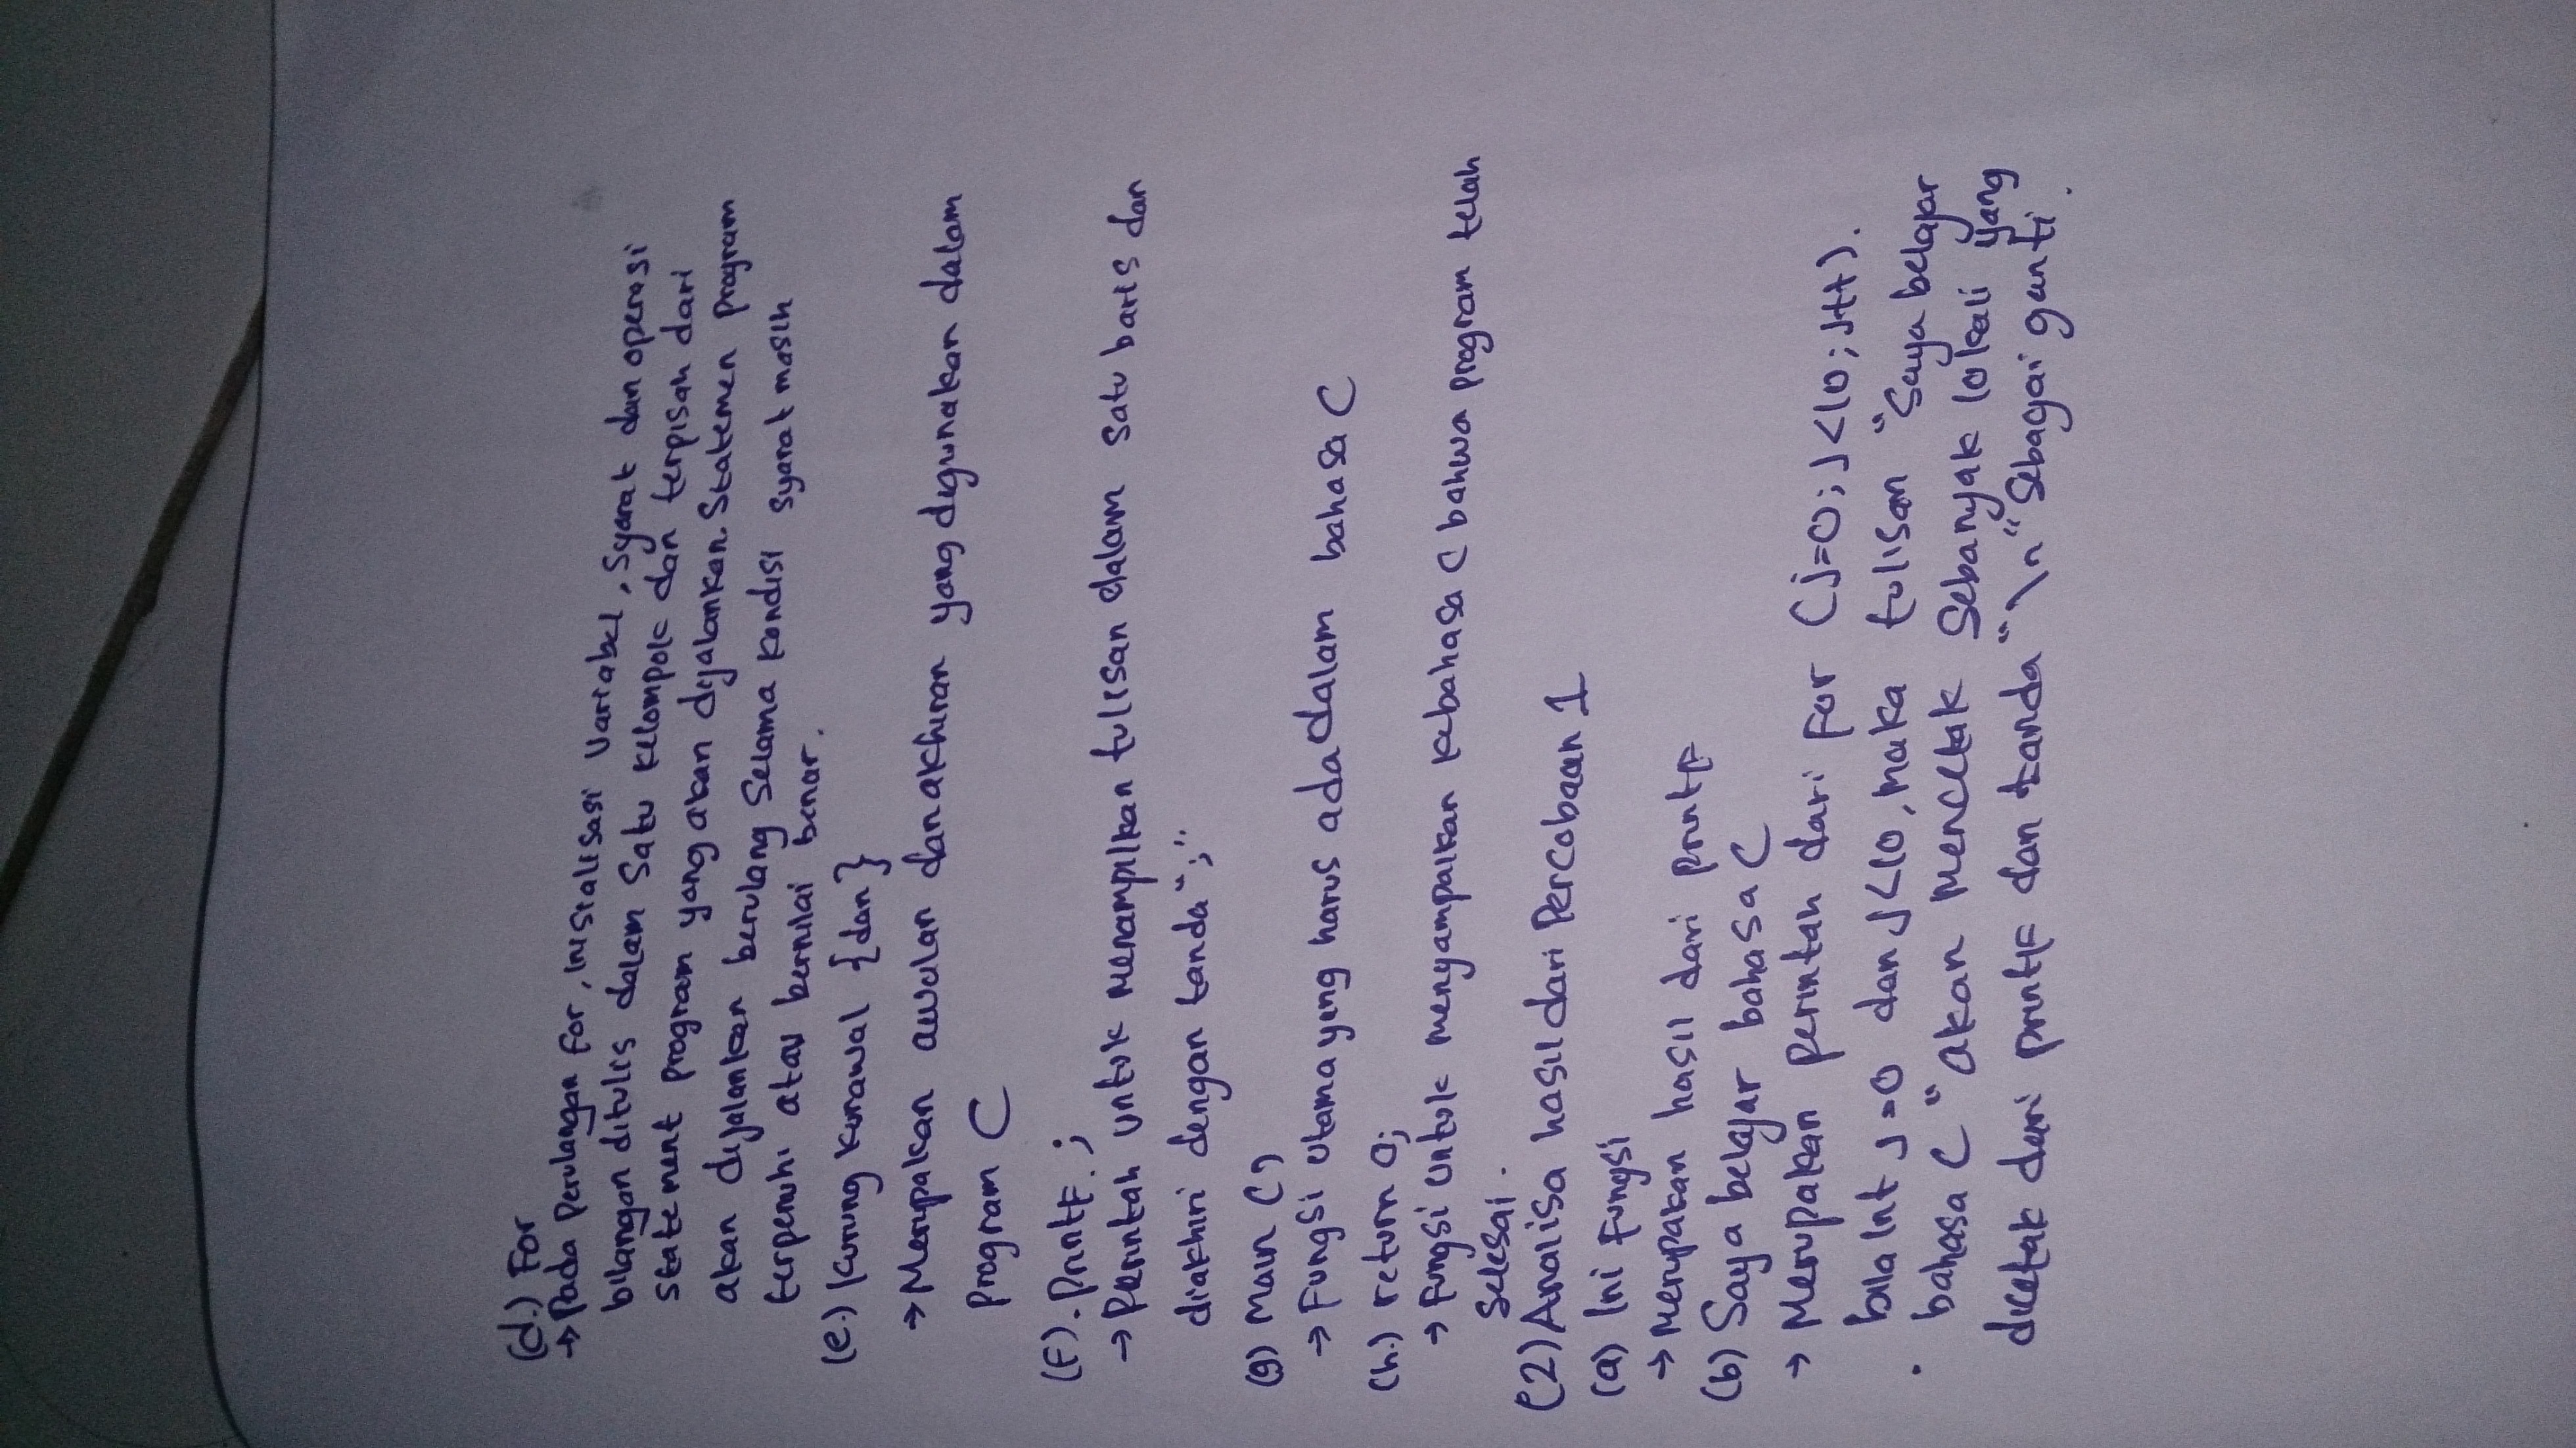 (d.) For
→ Pada Perulangan for, inisialisasi variabel, syarat dan operasi
bilangan ditulis dalam satu kelompok dan terpisah dari
statement program yang akan dijalankan. Statemen program
akan dijalankan berulang selama kondisi syarat masih
terpenuhi atau bernilai benar.
(e.) Kurung kurawal { dan }
→ Merupakan awalan dan akhiran yang digunakan dalam
program C
(F). Printf. ;
→ Perintah untuk menampilkan tulisan dalam satu baris dan
diakhiri dengan tanda ";".
(g) Main ()
→ Fungsi utama yang harus ada dalam bahasa C
(h.) return 0;
→ Fungsi untuk menyampaikan kebahasa C bahwa program telah
selesai.
(2) Analisa hasil dari Percobaan 1
(a) Ini Fungsi
→ Merupakan hasil dari printf
(b) Saya belajar bahasa C
→ Merupakan perintah dari For (j=0; j<10; j++).
bila Int j=0 dan j<10, maka tulisan "Saya belajar
bahasa C" akan mencetak sebanyak 10 kali yang
dicetak dari printf dan tanda "\n" sebagai ganti.